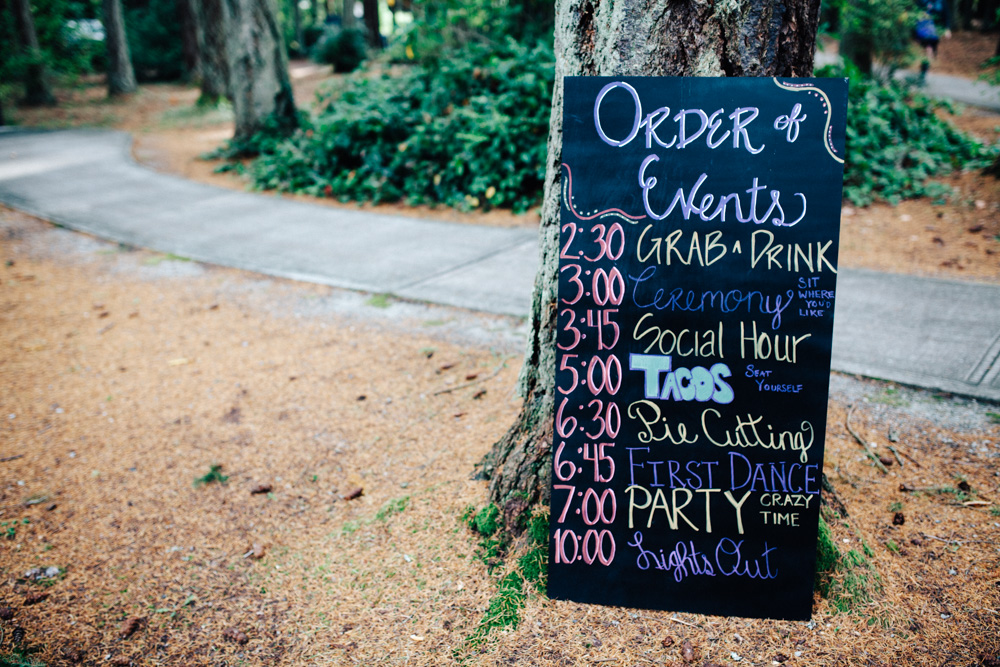 ORDER of
Events
2:30 GRAB A DRINK
3:00 Ceremony SIT WHERE YOU'D LIKE
3:45 Social Hour
5:00 TACOS SEAT YOURSELF
6:30 Pie Cutting
6:45 FIRST DANCE
7:00 PARTY CRAZY TIME
10:00 Lights Out